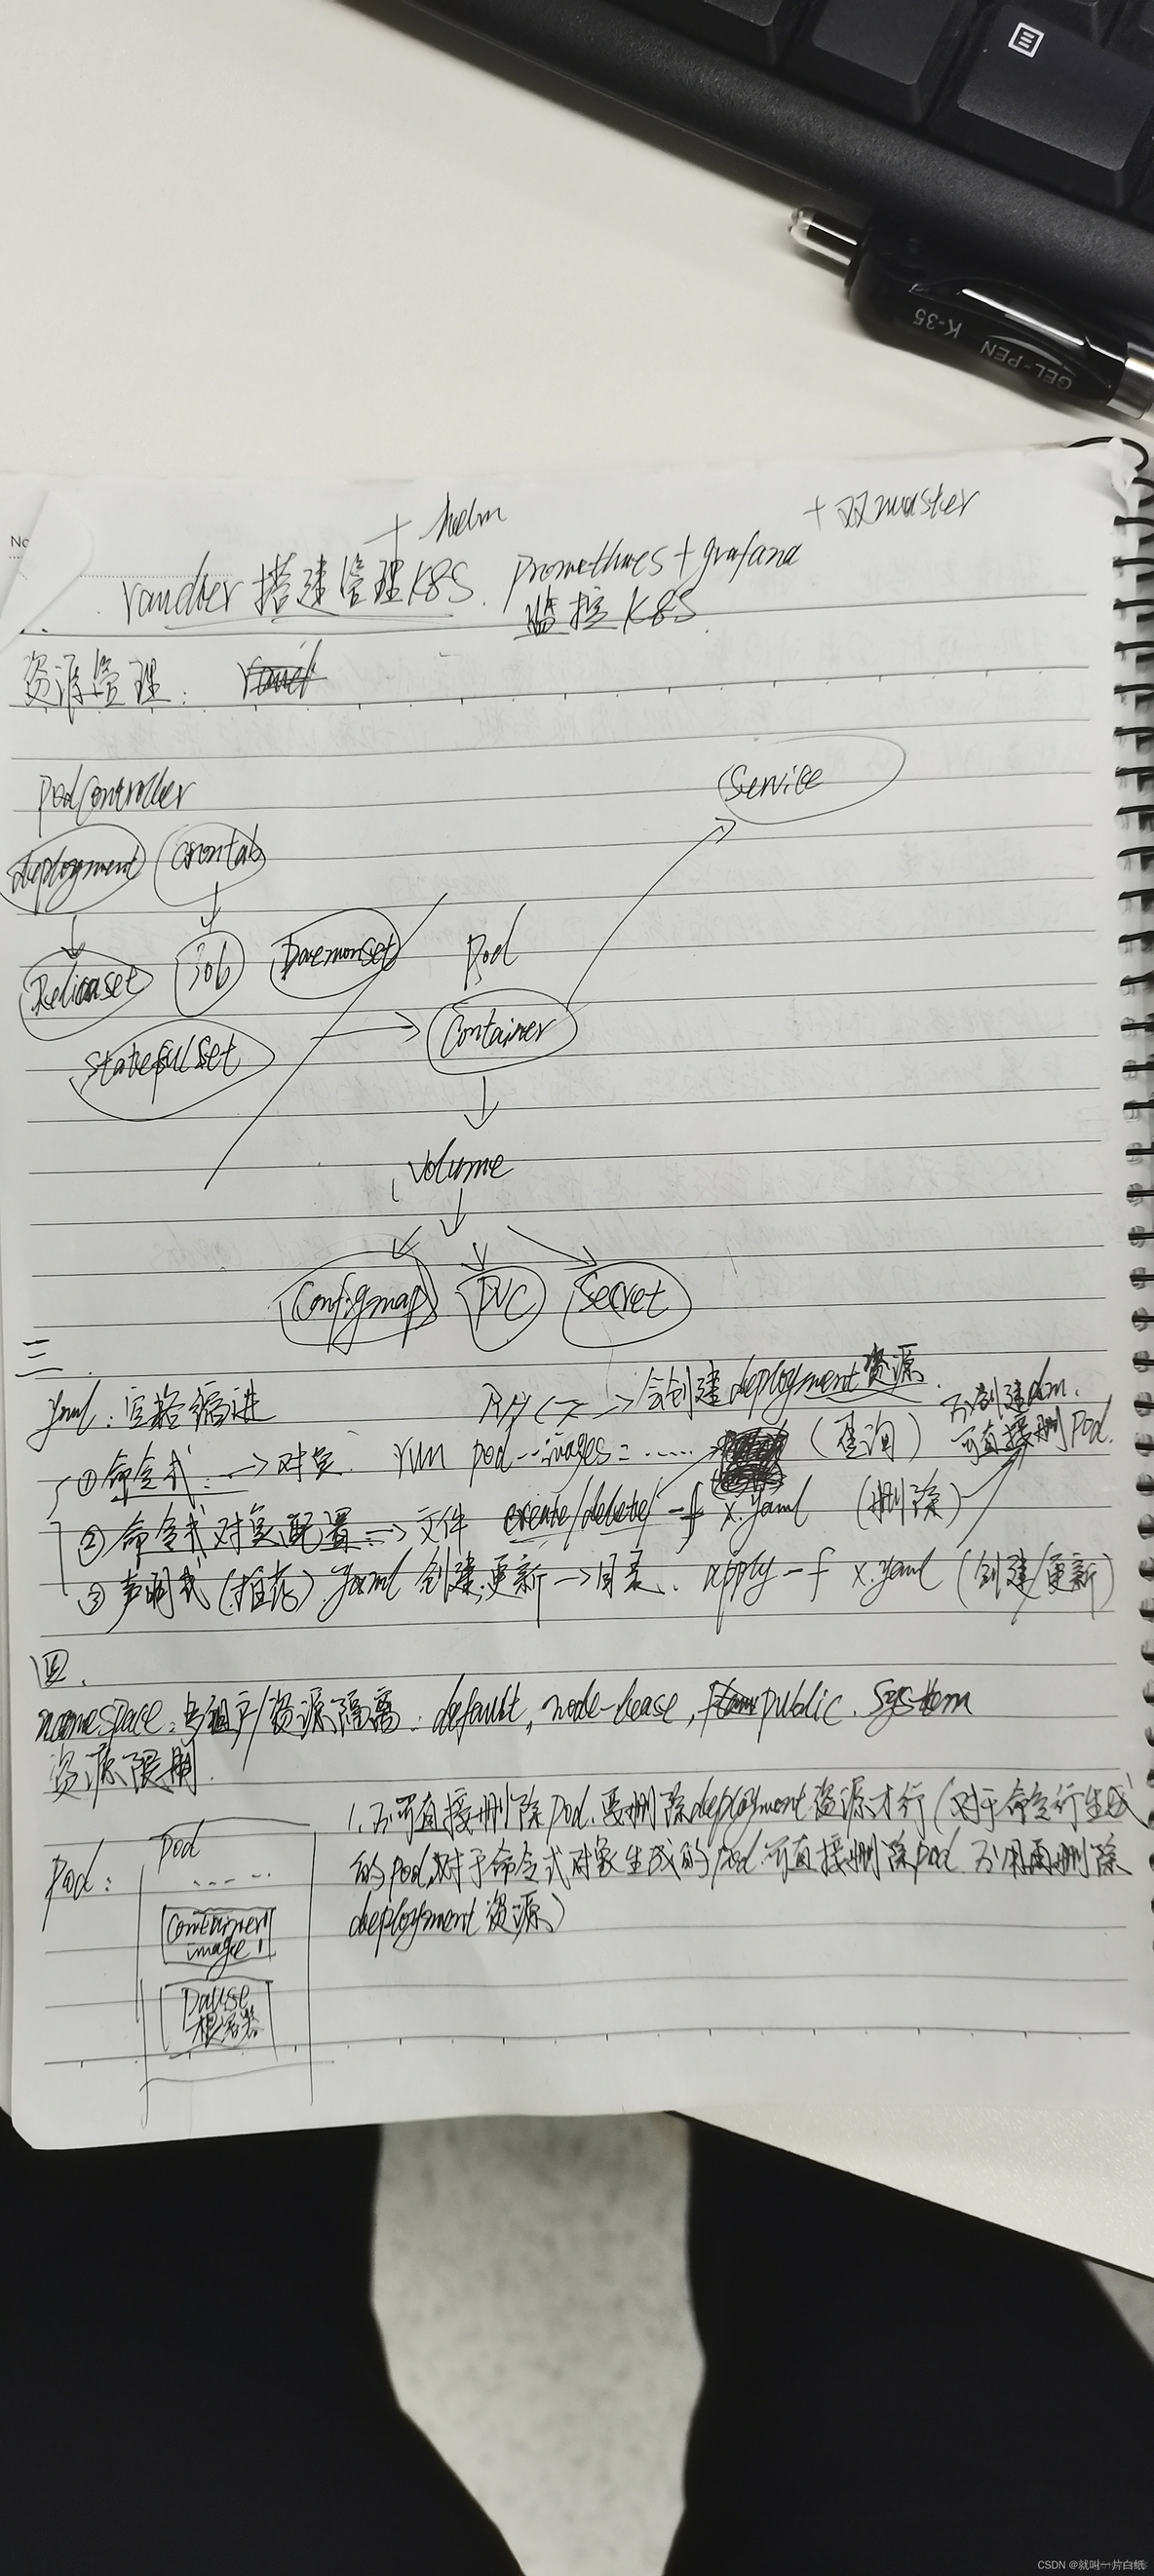 GEL-PEN K-35
No
+ helm
+双master
rancher 搭建管理K8S. promethues+grafana
监控K8S
资源管理:
Pod Controller
Service
deployment
crontab
Relicaset
Job
Daemonset
Pod
Container
StatefulSet
Volume
Configmap
PVC
Secret
三.
yaml: 空格缩进
会创建deployment资源.
不创建dm.
可直接删Pod.
①命令式: → 对象. run pod --images= ...... (查询)
②命令式对象配置 → 文件 create/delete -f x.yaml (删除)
③声明式(推荐) yaml 创建.更新 → 目录. apply -f x.yaml (创建/更新)
四.
namespace: 多租户/资源隔离. default, node-lease, public. system
资源限制.
Pod:
pod
....
container1
image1
pause
根容器
1. 不可直接删除pod.要删除deployment资源才行(对于命令行生成
的pod,对于命令式对象生成的pod.可直接删除pod 不用再删除
deployment资源)
CSDN @就叫一片白纸